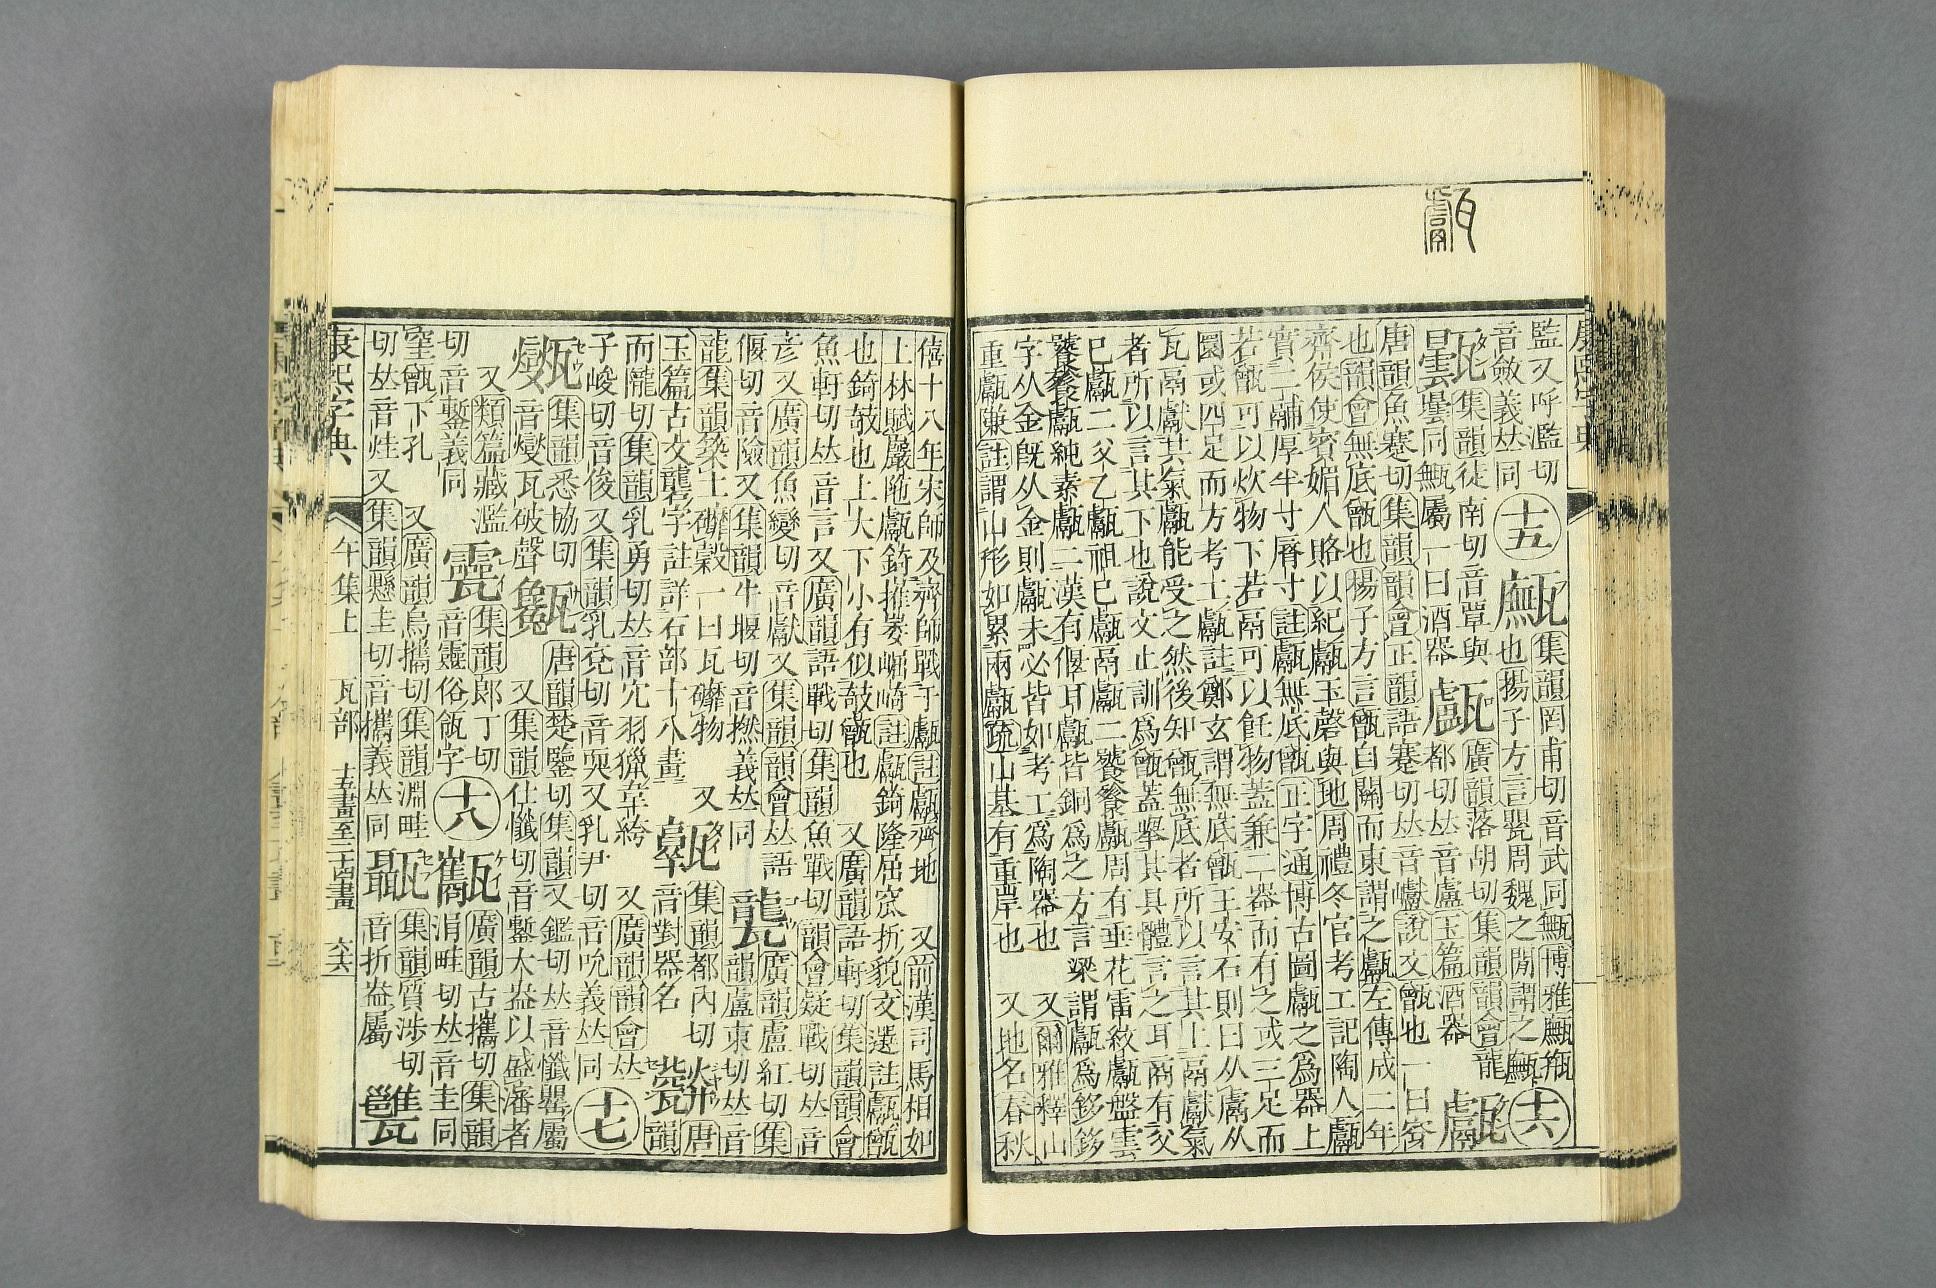 康熙字典
監又呼濫切
音斂義𠀤同
十五
甒
集韻罔甫切音武同㼢博雅甒瓶
也揚子方言罌周魏之閒謂之甒
十六
集韻徒南切音覃與
曇同㼽屬一曰酒器
廣韻落胡切集韻韻會龍
都切𠀤音盧玉篇酒器
甗
唐韻魚蹇切集韻韻會正韻語蹇切𠀤音巘說文甑也一曰穿
也韻會無底甑也揚子方言甑自關而東謂之甗左傳成二年
齊侯使賓媚人賂以紀甗玉磬與地周禮冬官考工記陶人甗
實二鬴厚半寸脣寸註甗無底甑正字通博古圖甗之爲器上
若甑可以炊物下若鬲可以飪物蓋兼二器而有之或三足而
圜或四足而方考工甗註鄭玄謂無底甑王安石則曰从鬳从
瓦鬲獻其氣甗能受之然後知甑無底者所以言其上鬲獻氣
者所以言其下也說文止訓爲甑蓋舉其具體言之耳商有父
己甗二父乙甗祖己甗鬲甗二饕餮甗周有垂花雷紋甗盤雲
饕餮甗純素甗二漢有偃耳甗皆銅爲之方言梁謂甗爲鉹鉹
字从金旣从金則甗未必皆如考工爲陶器也 又爾雅釋山
重甗隒註謂山形如累兩甗疏山基有重岸也 又地名春秋
僖十八年宋師及齊師戰于甗註甗齊地 又前漢司馬相如
上林賦巖陁甗錡摧崣崛崎註甗錡隆屈窊折貌文選註甗甑
也錡攲也上大下小有似攲甑也 又廣韻語軒切集韻韻會
魚軒切𠀤音言又廣韻語戰切集韻魚戰切韻會疑戰切𠀤音
彥又廣韻魚變切音獻又集韻韻會𠀤語
偃切音險又集韻牛堰切音撚義𠀤同
廣韻盧紅切集
韻盧東切𠀤音
龍集韻築土礱穀一曰瓦礲物 又
玉篇古文礱字註詳石部十八畫
集韻都內切
音對器名
唐
韻
而隴切集韻乳勇切𠀤音宂羽獵韋絝 又廣韻韻會𠀤
子峻切音俊又集韻乳兗切音耎又乳尹切音吮義𠀤同
十七
集韻悉協切
音燮瓦破聲
唐韻楚鑒切集韻又鑑切𠀤音懺罌屬
又集韻仕懺切音鑿大盎以盛瀋者
又類篇藏濫
切音鏨義同
集韻郎丁切
音靈俗瓴字
十八
廣韻古攜切集韻
涓畦切𠀤音圭同
窐甑下孔 又廣韻烏攜切集韻淵畦
切𠀤音烓又集韻懸圭切音攜義𠀤同
集韻質涉切
音折盎屬
康熙字典
午集上
瓦部
十五畫至二十四畫
六六